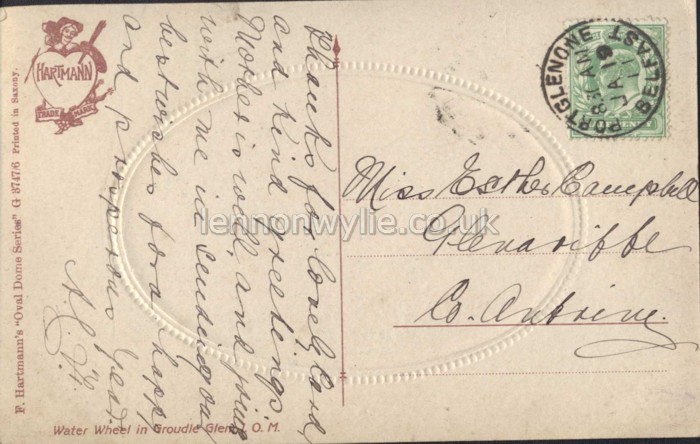 HARTMANN
TRADE MARK
F. Hartmann's "Oval Dome Series" G 8747/6 Printed in Saxony.
Thanks for lovely card,
and kind greetings
Mother is well, and joins
with me in sending our
best wishes for a happy
and prosperous year.
Water Wheel in Groudle Glen, I. O. M.
PORTGLENONE BELFAST
8.15 AM
JA 19
11
Miss Esther Campbell
Glenariffe
Co. Antrim.
lennonwylie.co.uk